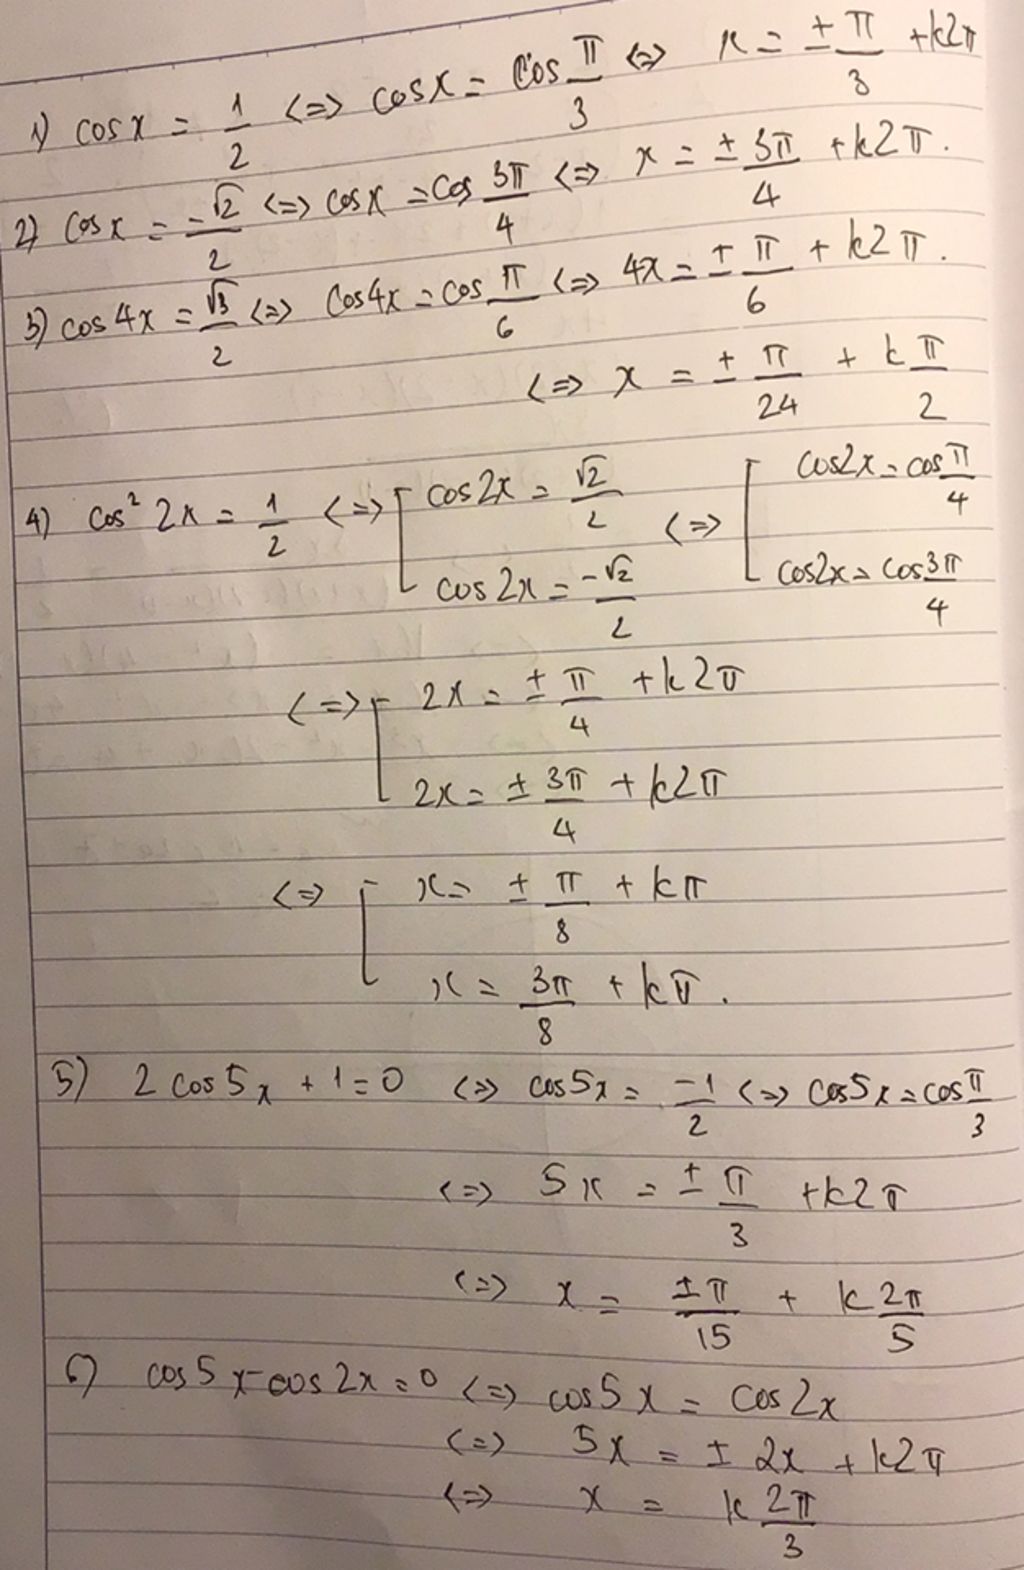 1) cos x = 1/2 <=> cos x = cos π/3 <=> x = ± π/3 + k2π
2) cos x = -√2/2 <=> cos x = cos 3π/4 <=> x = ± 3π/4 + k2π.
3) cos 4x = √3/2 <=> cos 4x = cos π/6 <=> 4x = ± π/6 + k2π.
<=> x = ± π/24 + k π/2
4) cos² 2x = 1/2 <=> [ cos 2x = √2/2 <=> [ cos2x = cos π/4
cos 2x = -√2/2 cos2x = cos 3π/4
<=> [ 2x = ± π/4 + k2π
2x = ± 3π/4 + k2π
<=> [ x = ± π/8 + kπ
x = 3π/8 + kπ.
5) 2 cos 5x + 1 = 0 <=> cos 5x = -1/2 <=> cos 5x = cos π/3
<=> 5x = ± π/3 + k2π
<=> x = ±π/15 + k 2π/5
6) cos 5x - cos 2x = 0 <=> cos 5x = cos 2x
<=> 5x = ± 2x + k2π
<=> x = k 2π/3